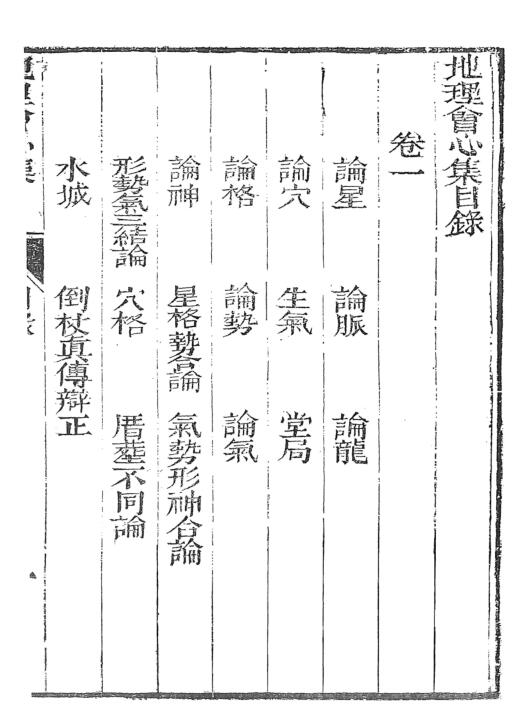 地理會心集目錄
卷一
論星　論脈　論龍
論穴　生氣　堂局
論格　論勢　論氣
論神　星格勢合論　氣勢形神合論
形勢氣三結論　穴格　厝塟不同論
水城　倒杖眞傳辯正
地理會心集　目錄